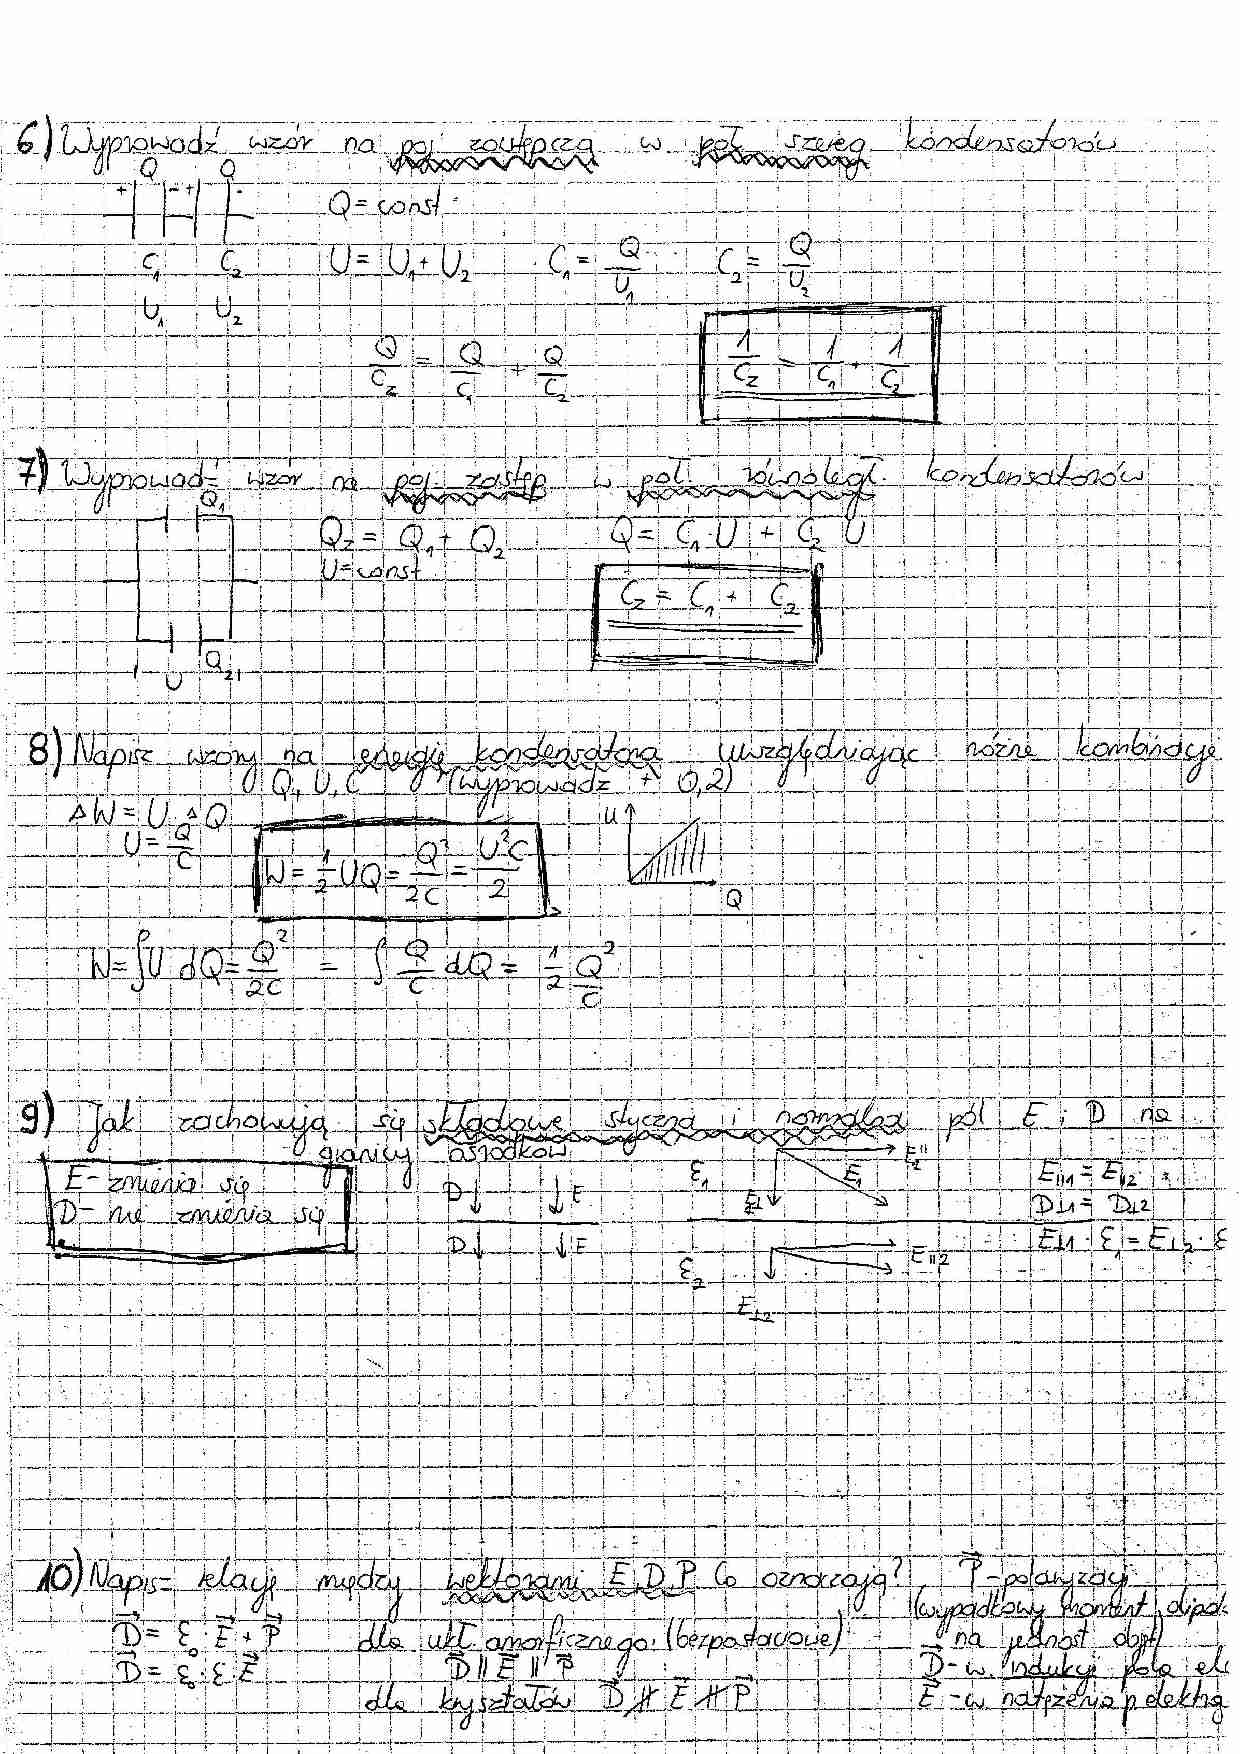 6) Wyprowadź wzór na poj zastępczą w poł szereg kondensatorów
Q Q
+ - + -
Q = const
C₁ C₂ U = U₁ + U₂ C₁ = Q/U₁ C₂ = Q/U₂
U₁ U₂
Q/Cz = Q/C₁ + Q/C₂ 1/Cz = 1/C₁ + 1/C₂
7) Wyprowadź wzór na poj. zastęp w poł. równoległ. kondensatorów
Q₁
Qz = Q₁ + Q₂ Q = C₁·U + C₂ U
U = const
Cz = C₁ + C₂
Q₂
U
8) Napisz wzory na energię kondensatora uwzględniając różne kombinacje
Q, U, C (wyprowadź + 0,2)
ΔW = U ΔQ
U = Q/C
W = 1/2 UQ = Q²/2C = U²C/2
U
Q
W = ∫U dQ = Q²/2C = ∫ Q/C dQ = 1/2 Q²/C
9) Jak zachowują się składowe styczna i normalna pól E i D na
granicy ośrodków
E - zmienia się
D - nie zmienia się
D E
D E
ε₁ E⊥ E₁ E₂"
ε₂ E∥2
E⊥2
E∥1 = E∥2
D⊥1 = D⊥2
E⊥1 · ε₁ = E⊥2 · ε
10) Napisz relację między wektorami E, D, P Co oznaczają? P⃗ - polaryzacji
(wypadkowy moment dipol
D⃗ = ε₀ · E⃗ + P⃗ dla ukł. amorficznego (bezpostaciowe) na jednost obj)
D⃗ = ε₀ · ε E⃗ D⃗ ∥ E⃗ ∥ P⃗ D⃗ - w. indukcji pola ele
dla kryształów D⃗ ∦ E⃗ ∦ P⃗ E⃗ - w natężenia p elektry